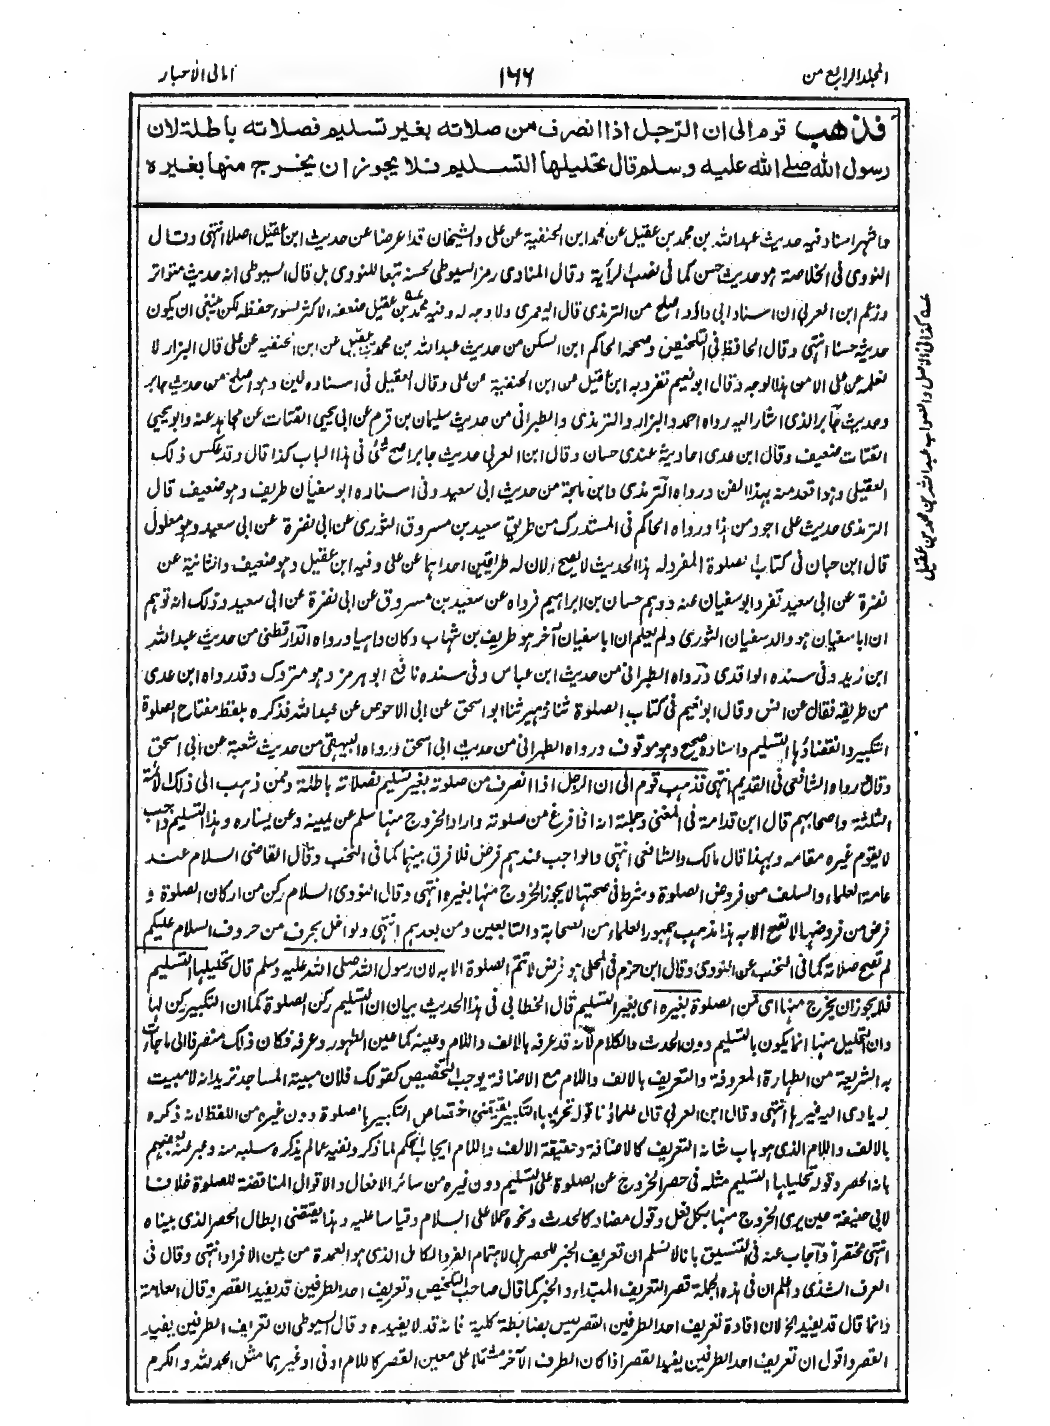 المجلد الرابع من ١٦٦ أماني الأحبار
فذهب قوم الى ان الرجل اذا انصرف من صلاته بغير تسليم فصلاته باطلة لان
رسول الله صلى الله عليه وسلم قال تحليلها التسليم فلا يجوز ان يخرج منها بغيره
واشهر اسناد فيه حديث عبد الله بن محمد بن عقيل عن محمد ابن الحنفية عن على والشيخان قد اعرضا عن حديث ابن عقيل اصلا انتهى وقال
النووى فى الخلاصة هو حديث حسن كما فى نصب الراية وقال المناوى رمز السيوطى لحسنه تبعا للنووى بل قال السيوطى انه حديث متواتر
وزعم ابن العربى ان اسناد ابى داؤد اصلح من الترمذى قال اليعمرى ولا وجه له وفيه محمد بن عقيل ضعفه الاكثر لسوء حفظه لكن ينبغى ان يكون
حديثه حسنا انتهى وقال الحافظ فى التلخيص وصححه الحاكم ابن السكن من حديث عبد الله بن محمد بن عقيل عن ابن الحنفيه عن على قال البزار لا
نعلمه عن على الا من هذا الوجه وقال ابو نعيم تفرد به ابن عقيل من ابن الحنفية عن على وقال العقيلى فى اسناده لين وهو اصلح من حديث جابر
وحديث جابر الذى اشار اليه رواه احمد والبزار والترمذى والطبرانى من حديث سليمان بن قرم عن ابى يحيى القتات عن مجاهد عنه وابو يحيى
القتات ضعيف وقال ابن عدى احاديثه عندى حسان وقال ابن العربى حديث جابر اصح شئ فى هذا الباب كذا قال وقد عكس ذلك
العقيلى وهو اقعد منه بهذا الفن ورواه الترمذى وابن ماجة من حديث ابى سعيد وفى اسناده ابو سفيان طريف وهو ضعيف قال
الترمذى حديث على اجود من هذا ورواه الحاكم فى المستدرك من طريق سعيد بن مسروق الثورى عن ابى نضرة عن ابى سعيد وهو معلول
قال ابن حبان فى كتاب الصلوة المفرد له هذا الحديث لا يصح لان له طريقين احداهما عن على وفيه ابن عقيل وهو ضعيف والثانية عن
نضرة عن ابى سعيد تفرد ابو سفيان عنه ووهم حسان بن ابراهيم فرواه عن سعيد بن مسروق عن ابى نضرة عن ابى سعيد وذلك انه توهم
ان ابا سفيان هو والد سفيان الثورى ولم يعلم ان ابا سفيان آخر هو طريف بن شهاب وكان واهيا ورواه الدارقطنى من حديث عبد الله
ابن زيد وفى سنده الواقدى ورواه الطبرانى من حديث ابن عباس وفى سنده نافع ابو هرمز وهو متروك وقد رواه ابن عدى
من طريقه فقال عن انس وقال ابو نعيم فى كتاب الصلوة ثنا زهير ثنا ابو اسحق عن ابى الاحوص عن عبد الله فذكره بلفظ مفتاح الصلوة
التكبير وانقضاؤها التسليم واسناده صحيح وهو موقوف ورواه الطبرانى من حديث ابى اسحق ورواه البيهقى من حديث شعبة عن ابى اسحق
وقال رواه الشافعى فى القديم انتهى فذهب قوم الى ان الرجل اذا انصرف من صلوته بغير تسليم فصلاته باطلة وممن ذهب الى ذلك الائمة
الثلثة واصحابهم قال ابن قدامة فى المغنى وجملته انه اذا فرغ من صلوته واراد الخروج منها سلم عن يمينه وعن يساره وهذا التسليم واجب
لا يقوم غيره مقامه وبهذا قال مالك والشافعى انتهى والواجب عندهم فرض فلا فرق بينهما كما فى النخب وقال القاضى السلام عند
عامة العلماء والسلف من فروض الصلوة وشرط فى صحتها لا يجوز الخروج منها بغيره انتهى وقال النووى السلام ركن من اركان الصلوة و
فرض من فروضها لا تصح الا به هذا مذهب جمهور العلماء من الصحابة والتابعين ومن بعدهم انتهى ولو اخل بحرف من حروف السلام عليكم
لم تصح صلاته كما فى النخب عن النووى وقال ابن حزم فى المحلى هو فرض لا تتم الصلوة الا به لان رسول الله صلى الله عليه وسلم قال تحليلها التسليم
فلا يجوز ان يخرج منها اى من الصلوة بغيره اى بغير التسليم قال الخطابى فى هذا الحديث بيان ان التسليم ركن الصلوة كما ان التكبير ركن لها
وان التحليل منها انما يكون بالتسليم دون الحدث والكلام لانه قد عرفه بالالف واللام وعينه كما عين الطهور وعرفه فكان ذلك منصرفا الى ما جاءت
به الشريعة من الطهارة المعروفة والتعريف بالالف واللام مع الاضافة يوجب التخصيص كقولك فلان مبيته المساجد تريد انه لا مبيت
له ياوى اليه غيرها انتهى وقال ابن العربى قال علماؤنا قوله تحريمها التكبير يقتضى اختصاص التكبير بالصلوة دون غيره من اللفظ لانه ذكره
بالالف واللام الذى هو باب شانه التعريف كالاضافة وحقيقة الالف واللام ايجاب الحكم لما ذكر ونفيه عما لم يذكر وسلبه منه وعبر عنه بعضهم
بانه الحصر وقوله تحليلها التسليم مثله فى حصر الخروج عن الصلوة على التسليم دون غيره من سائر الافعال والاقوال المناقضة للصلوة خلافا
لابى حنيفة حين يرى الخروج منها بكل فعل وقول مضاد كالحدث ونحوه حملا على السلام وقياسا عليه وهذا يقتضى ابطال الحصر الذى بيناه
انتهى مختصرا واجاب عنه فى التنسيق بانا لا نسلم ان تعريف الخبر للحصر بل لاهتمام الفرد الكامل الذى هو العمدة من بين الافراد انتهى وقال فى
العرف الشذى واعلم ان فى هذه الجملة قصر التعريف المبتداء والخبر كما قال صاحب التلخيص وتعريف احد الطرفين قد يفيد القصر وقال العلامة
وانما قال قد يفيد الخ لان افادة تعريف احد الطرفين القصر ليس بضابطة كلية فانه قد لا يفيده وقال السيوطى ان تعريف الطرفين يفيد
القصر واقول ان تعريف احد الطرفين يفيد القصر اذا كان الطرف الآخر مشتملا على معين القصر كاللام او فى او غيرهما مثل الحمد لله والكرم
عـه كذا فى الاصل والصواب عبد الله بن محمد بن عقيل